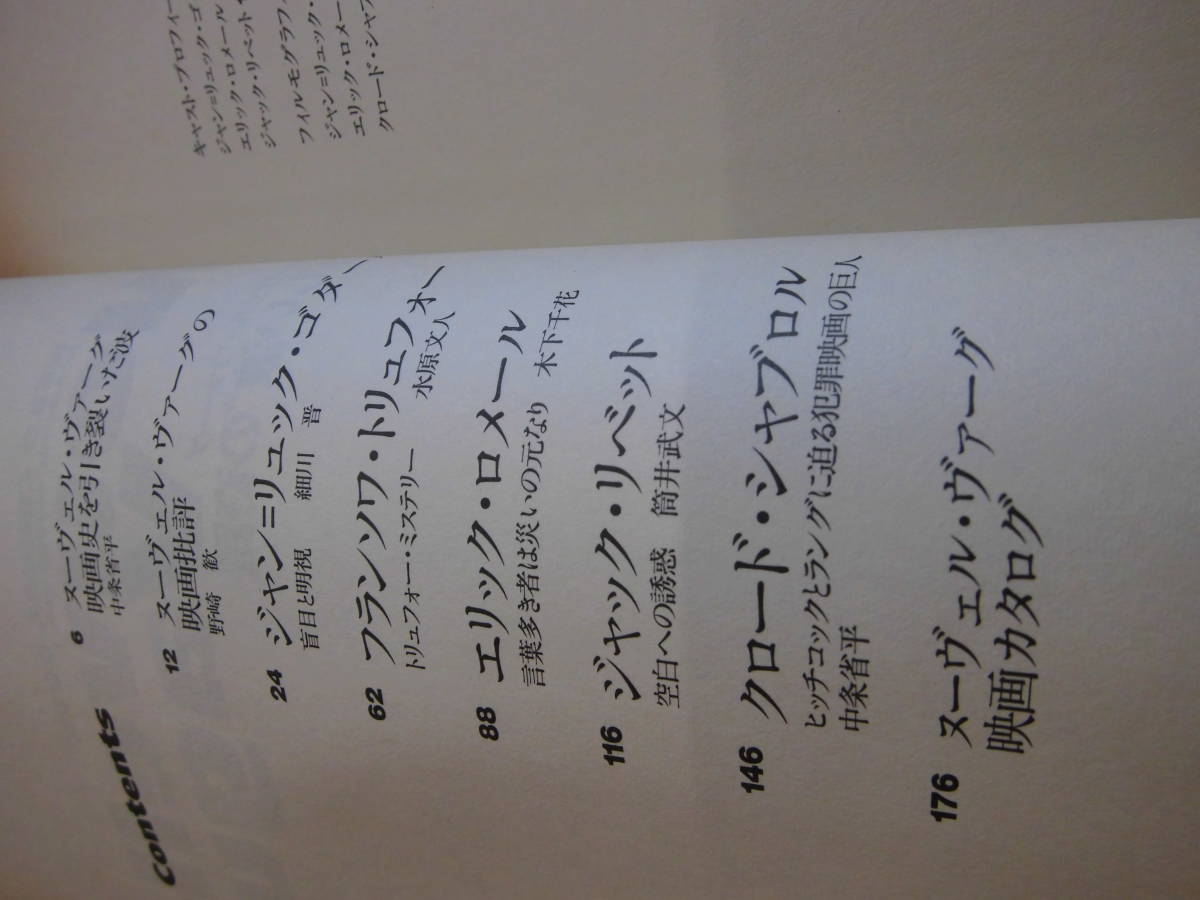 Contents
6 ヌーヴェル・ヴァーグ
映画史を引き裂いた波
中条省平
12 ヌーヴェル・ヴァーグの
映画批評
野崎 歓
24 ジャン=リュック・ゴダー
盲目と明視 細川 晋
62 フランソワ・トリュフォー
トリュフォー・ミステリー 水原文人
88 エリック・ロメール
言葉多き者は災いの元なり 木下千花
116 ジャック・リベット
空白への誘惑 筒井武文
146 クロード・シャブロル
ヒッチコックとラングに迫る犯罪映画の巨人
中条省平
176 ヌーヴェル・ヴァーグ
映画カタログ
キャスト・プロフィー
ジャン=リュック・ゴ
エリック・ロメール
ジャック・リベット
フィルモグラフ
ジャン=リュック・
エリック・ロメー
クロード・シャブ